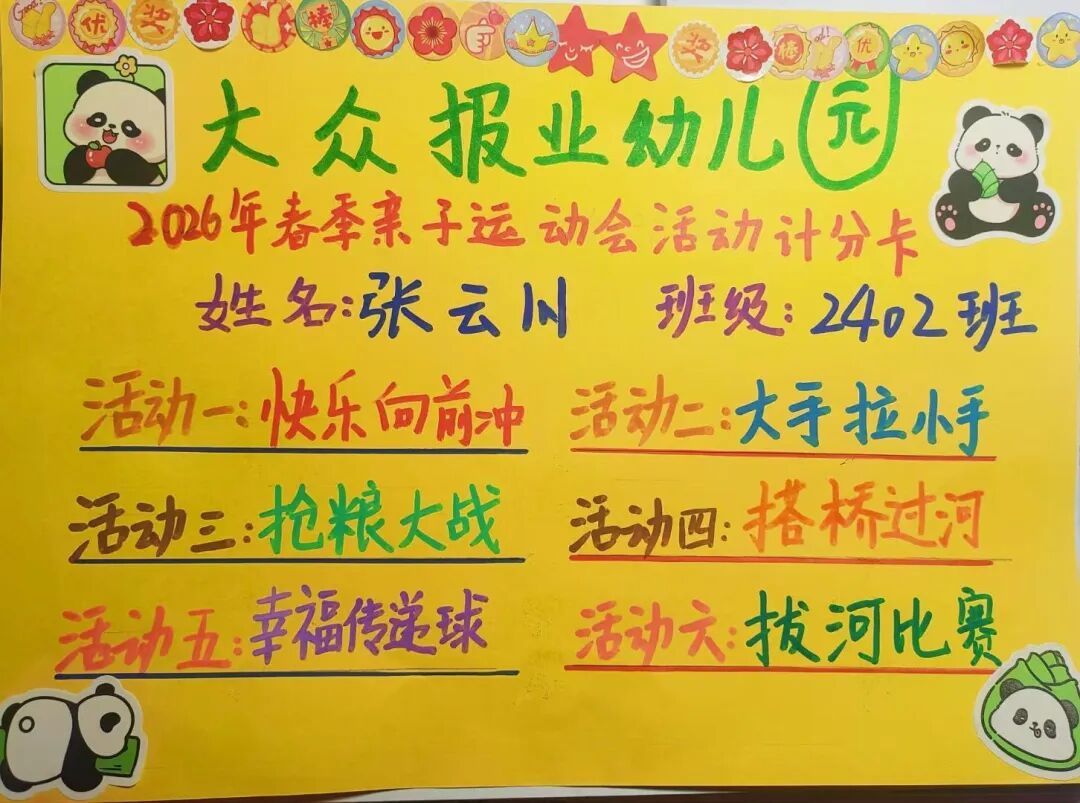 大众报业幼儿园
2026年春季亲子运动会活动计分卡
姓名:张云川 班级:2402班
活动一:快乐向前冲 活动二:大手拉小手
活动三:抢粮大战 活动四:搭桥过河
活动五:幸福传递球 活动六:拔河比赛